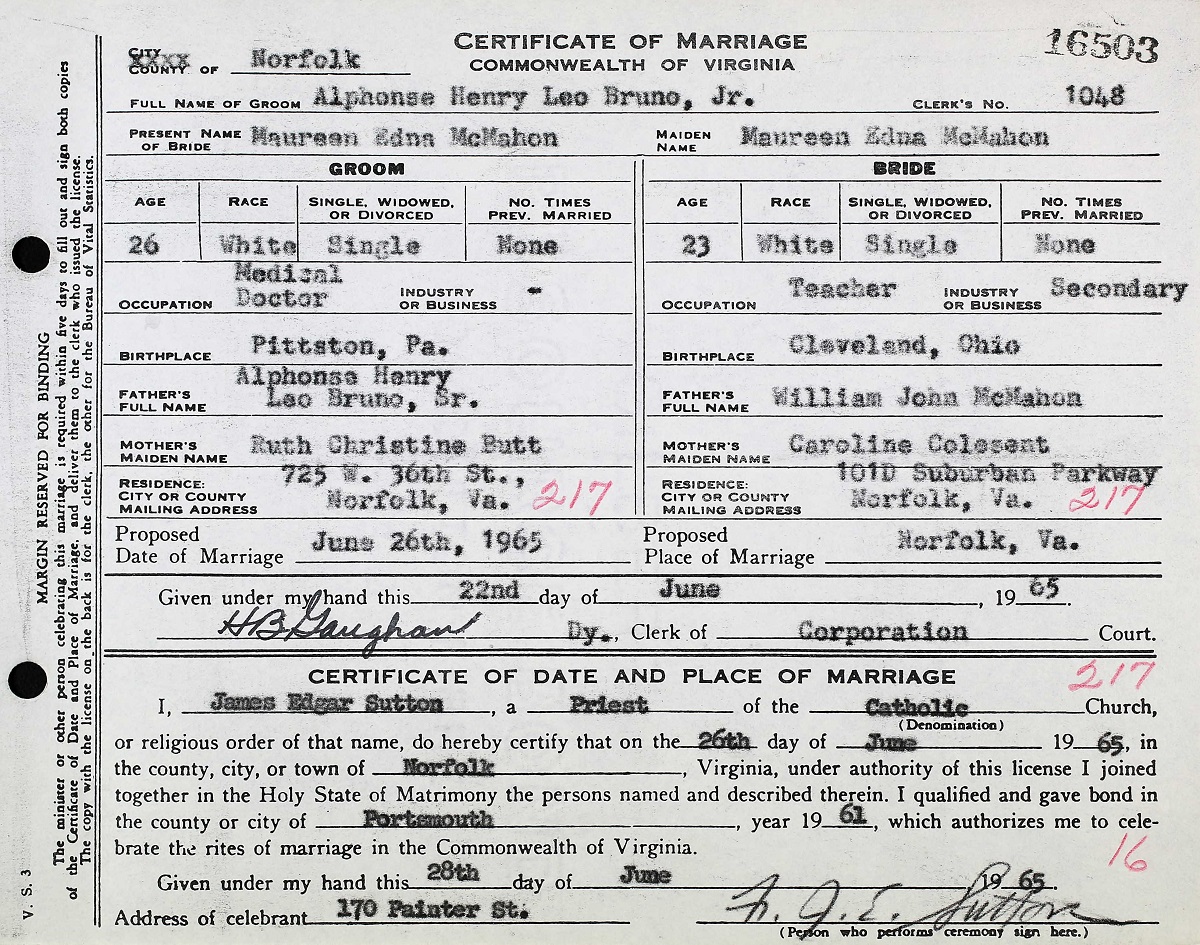 CERTIFICATE OF MARRIAGE
COMMONWEALTH OF VIRGINIA
16503
CITY
XXXX
COUNTY OF Norfolk
FULL NAME OF GROOM Alphonse Henry Leo Bruno, Jr. CLERK'S NO. 1048
PRESENT NAME OF BRIDE Maureen Edna McMahon MAIDEN NAME Maureen Edna McMahon
GROOM BRIDE
AGE RACE SINGLE, WIDOWED, OR DIVORCED NO. TIMES PREV. MARRIED AGE RACE SINGLE, WIDOWED, OR DIVORCED NO. TIMES PREV. MARRIED
26 White Single None 23 White Single None
OCCUPATION Medical Doctor INDUSTRY OR BUSINESS - OCCUPATION Teacher INDUSTRY OR BUSINESS Secondary
BIRTHPLACE Pittston, Pa. BIRTHPLACE Cleveland, Ohio
FATHER'S FULL NAME Alphonse Henry Leo Bruno, Sr. FATHER'S FULL NAME William John McMahon
MOTHER'S MAIDEN NAME Ruth Christine Butt MOTHER'S MAIDEN NAME Caroline Colesent
RESIDENCE: CITY OR COUNTY MAILING ADDRESS 725 W. 36th St., Norfolk, Va. 217 RESIDENCE: CITY OR COUNTY MAILING ADDRESS 101D Suburban Parkway Norfolk, Va. 217
Proposed Date of Marriage June 26th, 1965 Proposed Place of Marriage Norfolk, Va.
Given under my hand this 22nd day of June, 19 65.
H B Gaughan Dy., Clerk of Corporation Court.
CERTIFICATE OF DATE AND PLACE OF MARRIAGE 217
I, James Edgar Sutton, a Priest of the Catholic Church,
(Denomination)
or religious order of that name, do hereby certify that on the 26th day of June 19 65, in
the county, city, or town of Norfolk, Virginia, under authority of this license I joined
together in the Holy State of Matrimony the persons named and described therein. I qualified and gave bond in
the county or city of Portsmouth, year 19 61, which authorizes me to cele-
brate the rites of marriage in the Commonwealth of Virginia. 16
Given under my hand this 28th day of June 19 65.
Address of celebrant 170 Painter St. J. E. Sutton
(Person who performs ceremony sign here.)
V. S. 3
MARGIN RESERVED FOR BINDING
The minister or other person celebrating this marriage is required within five days to fill out and sign both copies
of the Certificate of Date and Place of Marriage, and deliver them to the clerk who issued the license.
The copy with the license on the back is for the clerk, the other for the Bureau of Vital Statistics.